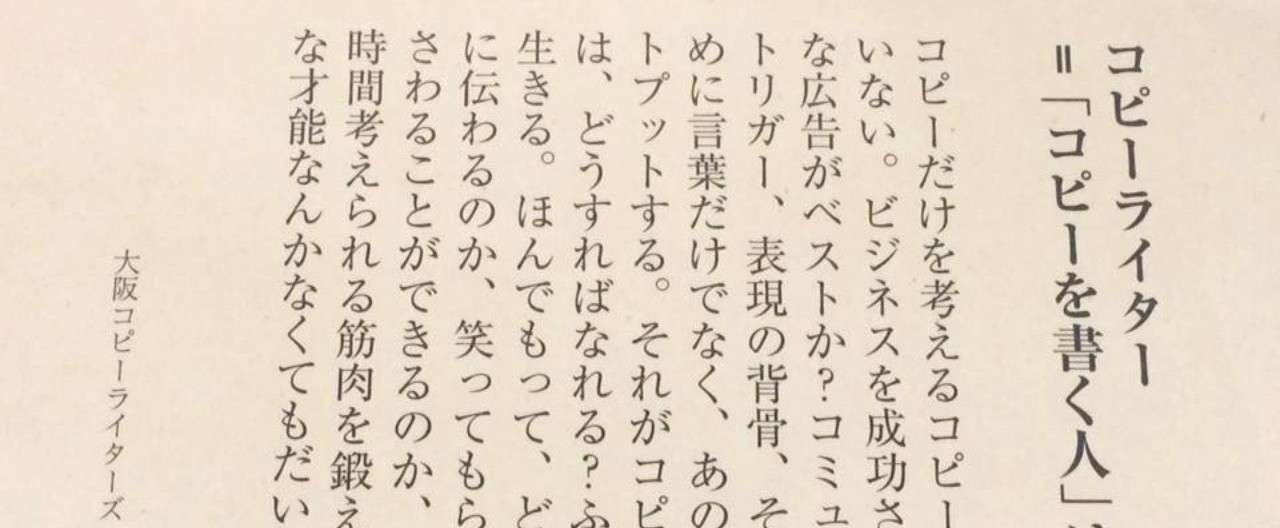 コピーライター
＝「コピーを書く人」
コピーだけを考えるコピー
いない。ビジネスを成功さ
な広告がベストか？コミュ
トリガー、表現の背骨、そ
めに言葉だけでなく、あの
トプットする。それがコピ
は、どうすればなれる？ふ
生きる。ほんでもって、ど
に伝わるのか、笑ってもら
さわることができるのか、
時間考えられる筋肉を鍛え
な才能なんかなくてもだい
大阪コピーライターズ